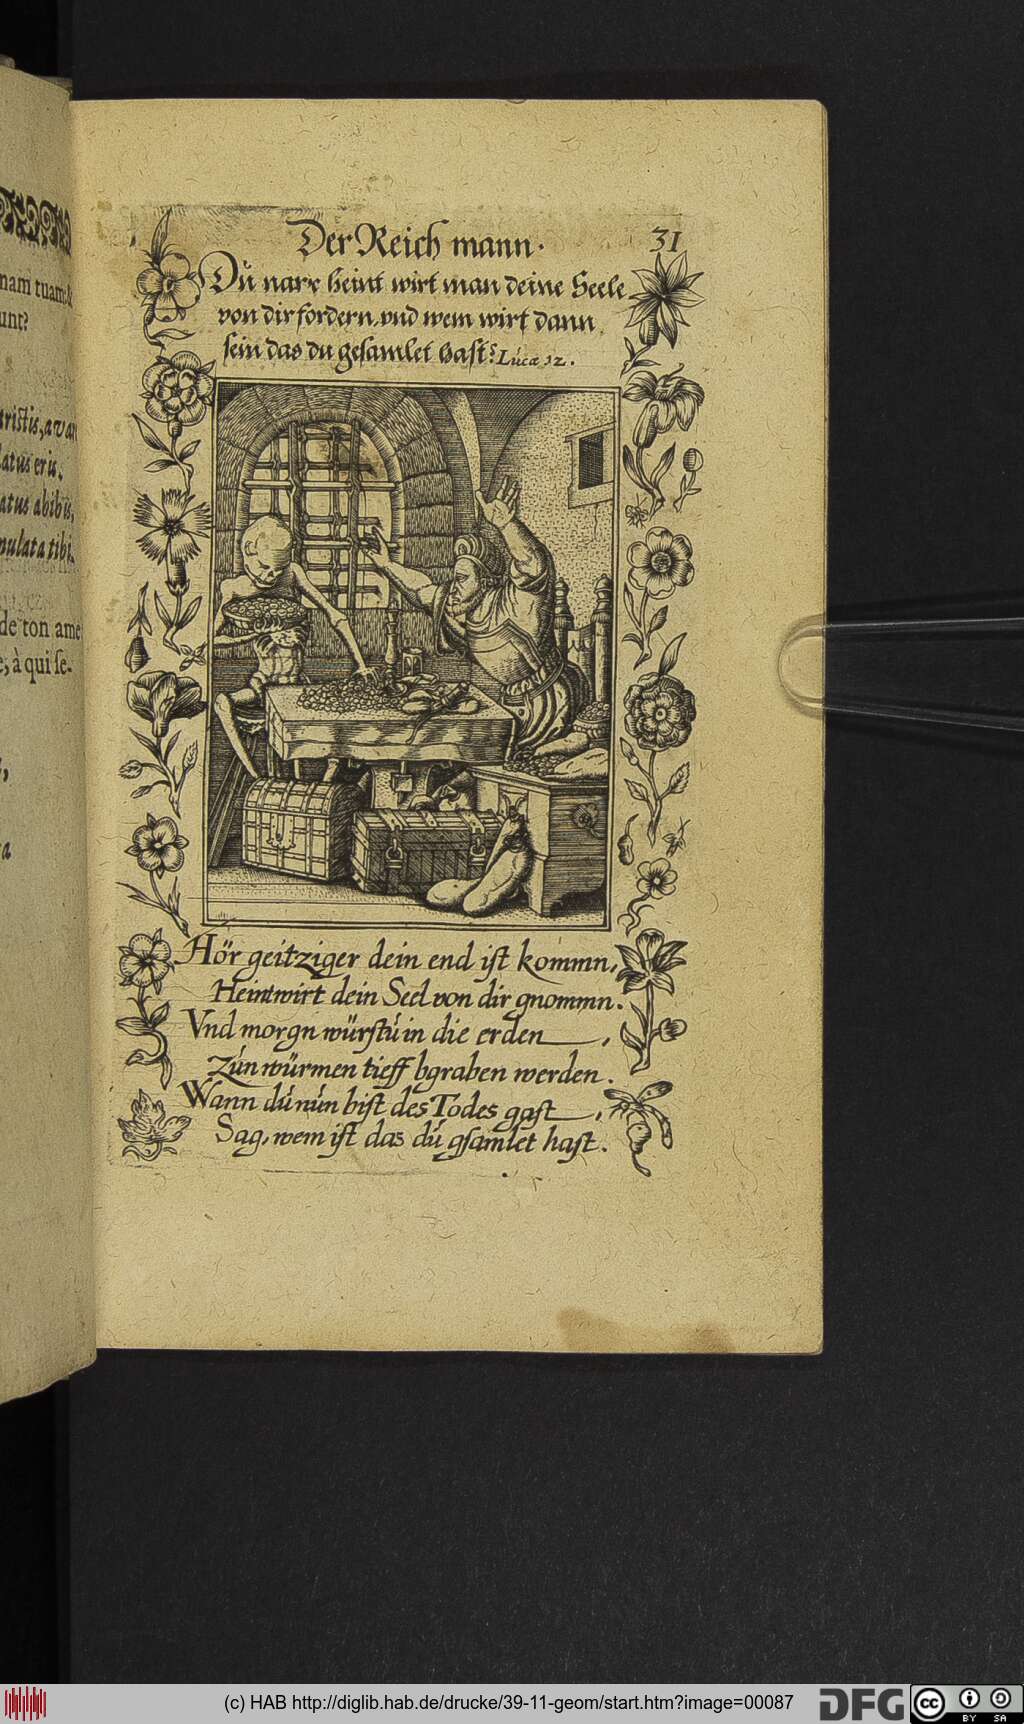 nam tuam
unt?
latus eris,
atus abibis,
mulata tibi.
de ton ame
e, à qui se-
Der Reich mann.
31
Dů narr heint wirt man deine Seele
von dir fordern, vnd wem wirt dann
sein das du gesamlet hast? Lucæ 12.
Hör geitziger dein end ist kommn,
Heint wirt dein Seel von dir gnommn.
Vnd morgn würstů in die erden,
Zůn würmen tieff bgraben werden.
Wann dů nůn bist des Todes gast,
Sag, wem ist das dů gsamlet hast.
(c) HAB http://diglib.hab.de/drucke/39-11-geom/start.htm?image=00087
DFG
cc
BY SA